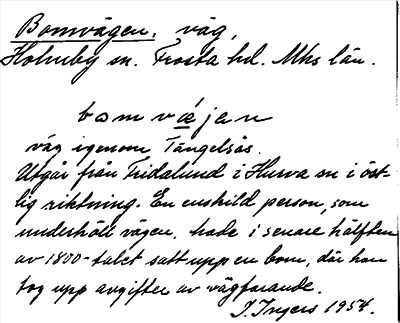 Bomvägen, väg,
Holmby sn. Frosta hd. Mhs län.
bomväjan
väg igenom Tängelsås.
Utgår från Fridalund i Hurva sn i öst-
lig riktning. En enskild person, som
underhöll vägen, hade i senare hälften
av 1800-talet satt upp en bom, där han
tog upp avgifter av vägfarande.
I. Ingers 1954.